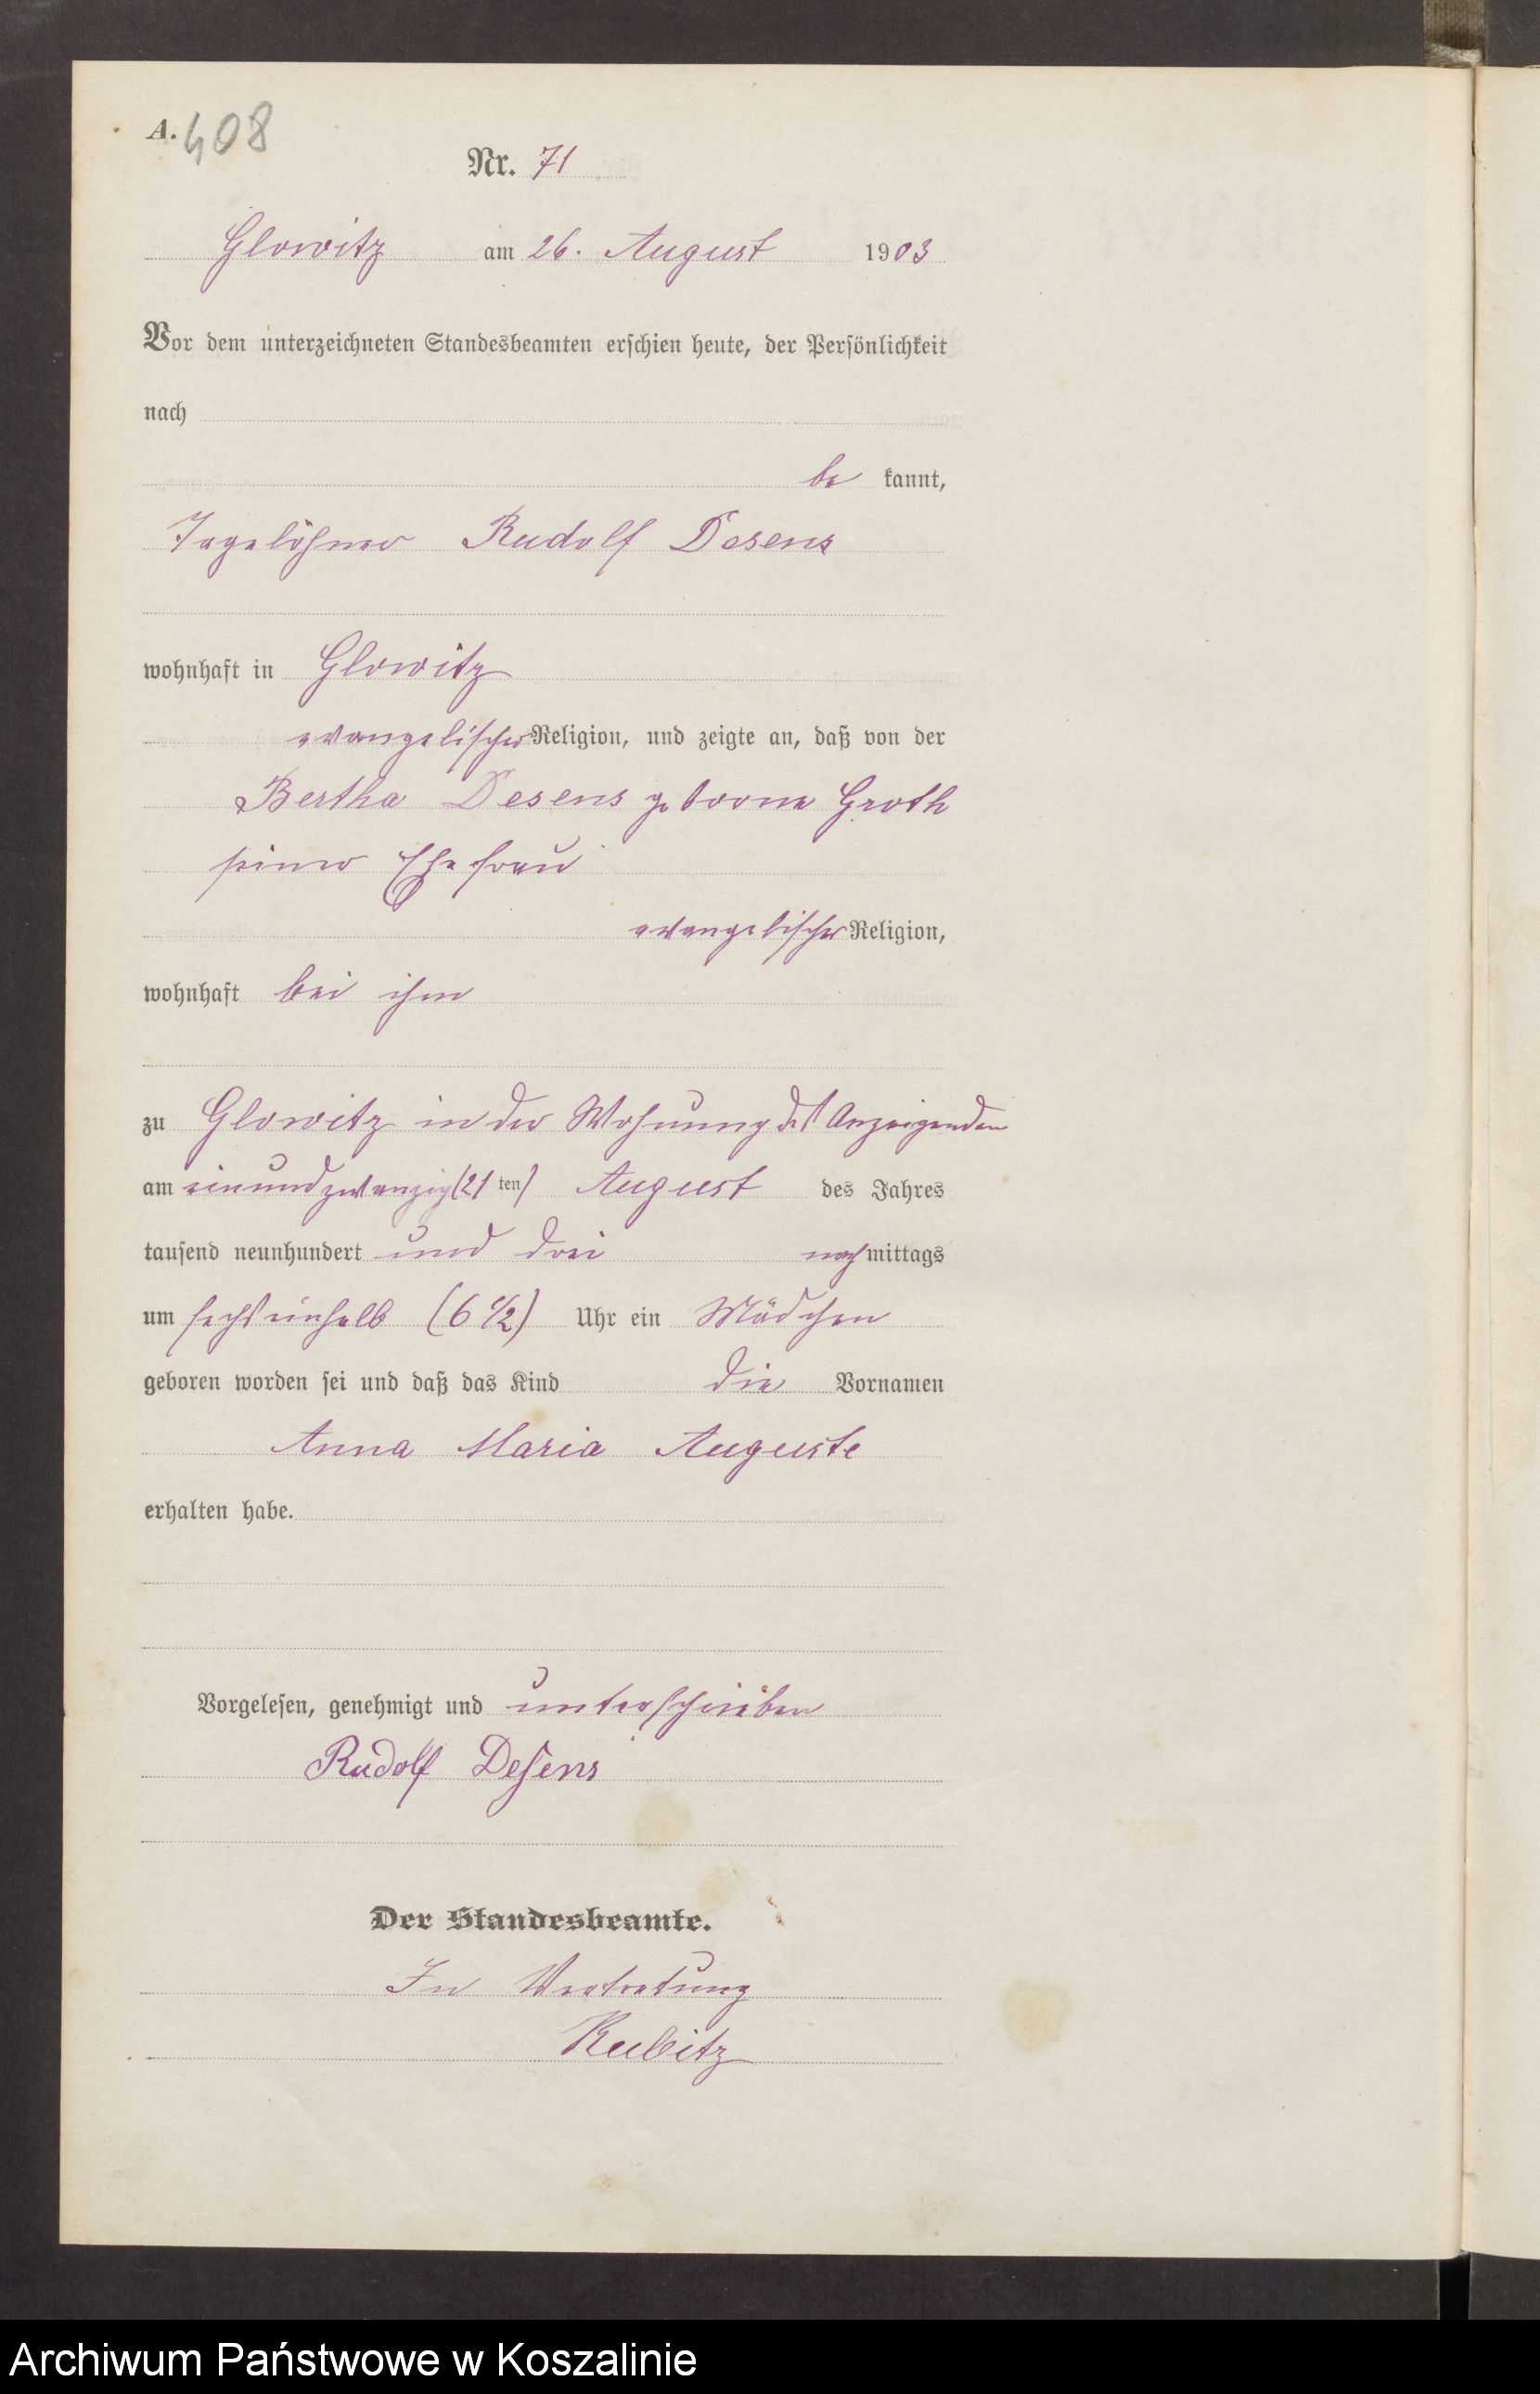 A. 408
Nr. 71
Glowitz am 26. August 1903
Vor dem unterzeichneten Standesbeamten erschien heute, der Persönlichkeit
nach
be kannt,
Tagelöhner Rudolf Desens
wohnhaft in Glowitz
evangelischer Religion, und zeigte an, daß von der
Bertha Desens geborne Groth
seiner Ehefrau
evangelischer Religion,
wohnhaft bei ihm
zu Glowitz in der Wohnung des Anzeigenden
am einundzwanzig (21 ten) August des Jahres
tausend neunhundert und drei nach mittags
um sechseinhalb (6 1/2) Uhr ein Mädchen
geboren worden sei und daß das Kind die Vornamen
Anna Maria Auguste
erhalten habe.
Vorgelesen, genehmigt und unterschrieben
Rudolf Desens
Der Standesbeamte.
In Vertretung
Kubitz
Archiwum Państwowe w Koszalinie